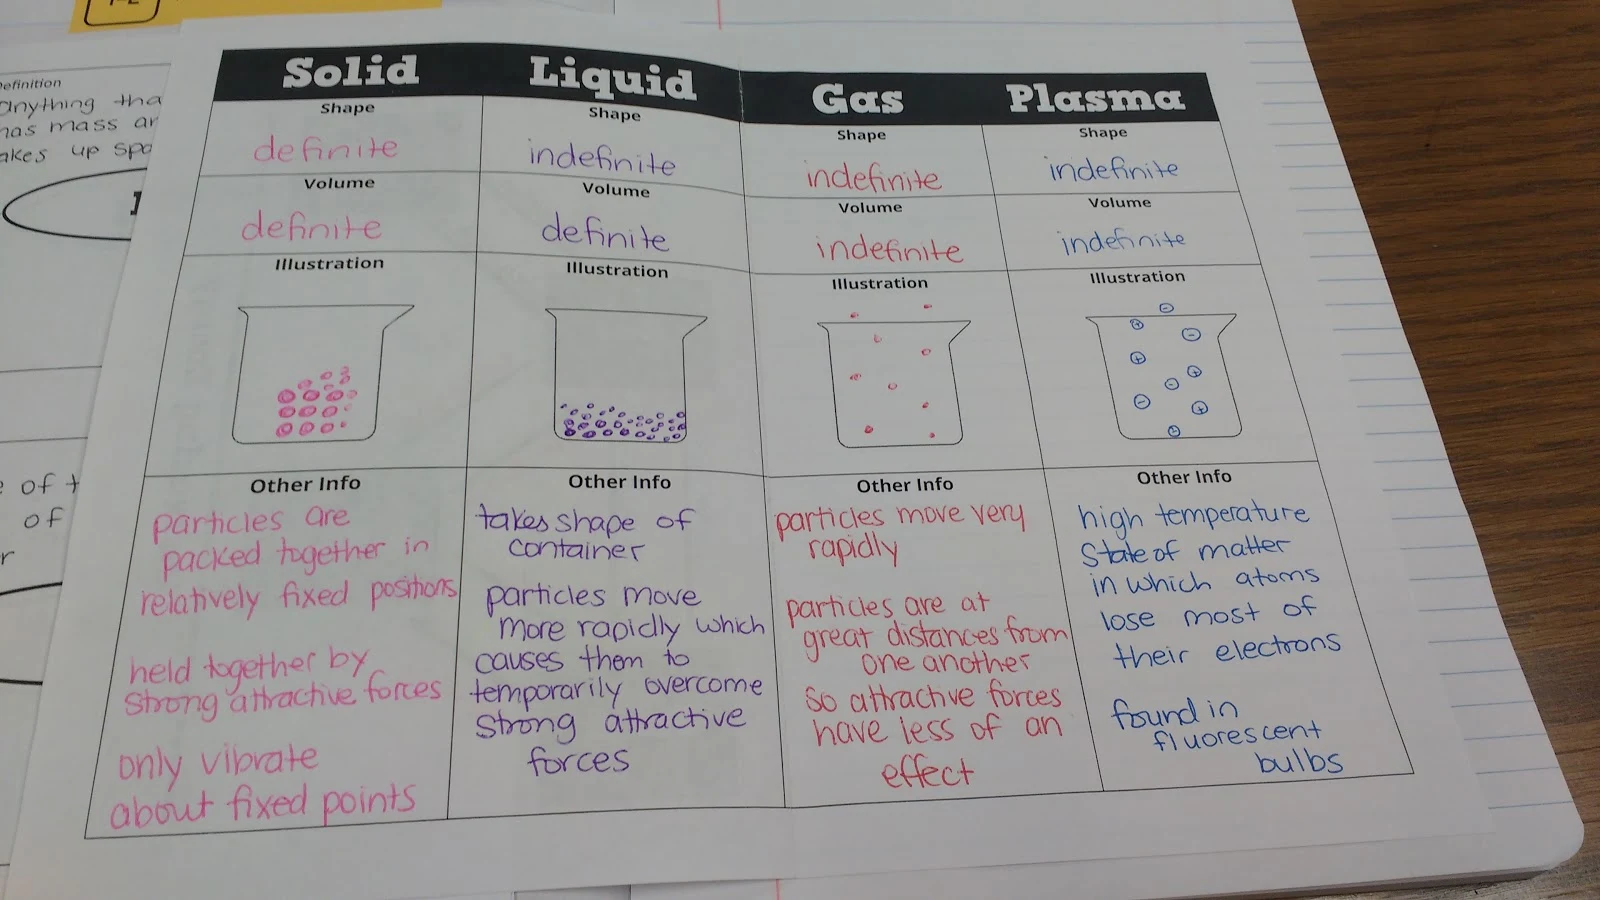 Definition
anything
has mass
up
of
of
Solid
Shape
definite
Volume
definite
Illustration
Other Info
particles are
packed together in
relatively fixed positions
held together by
strong attractive forces
only vibrate
about fixed points
Liquid
Shape
indefinite
Volume
definite
Illustration
Other Info
takes shape of
container
particles move
more rapidly which
causes them to
temporarily overcome
strong attractive
forces
Gas
Shape
indefinite
Volume
indefinite
Illustration
Other Info
particles move very
rapidly
particles are at
great distances from
one another
so attractive forces
have less of an
effect
Plasma
Shape
indefinite
Volume
indefinite
Illustration
Other Info
high temperature
State of matter
in which atoms
lose most of
their electrons
found in
fluorescent
bulbs